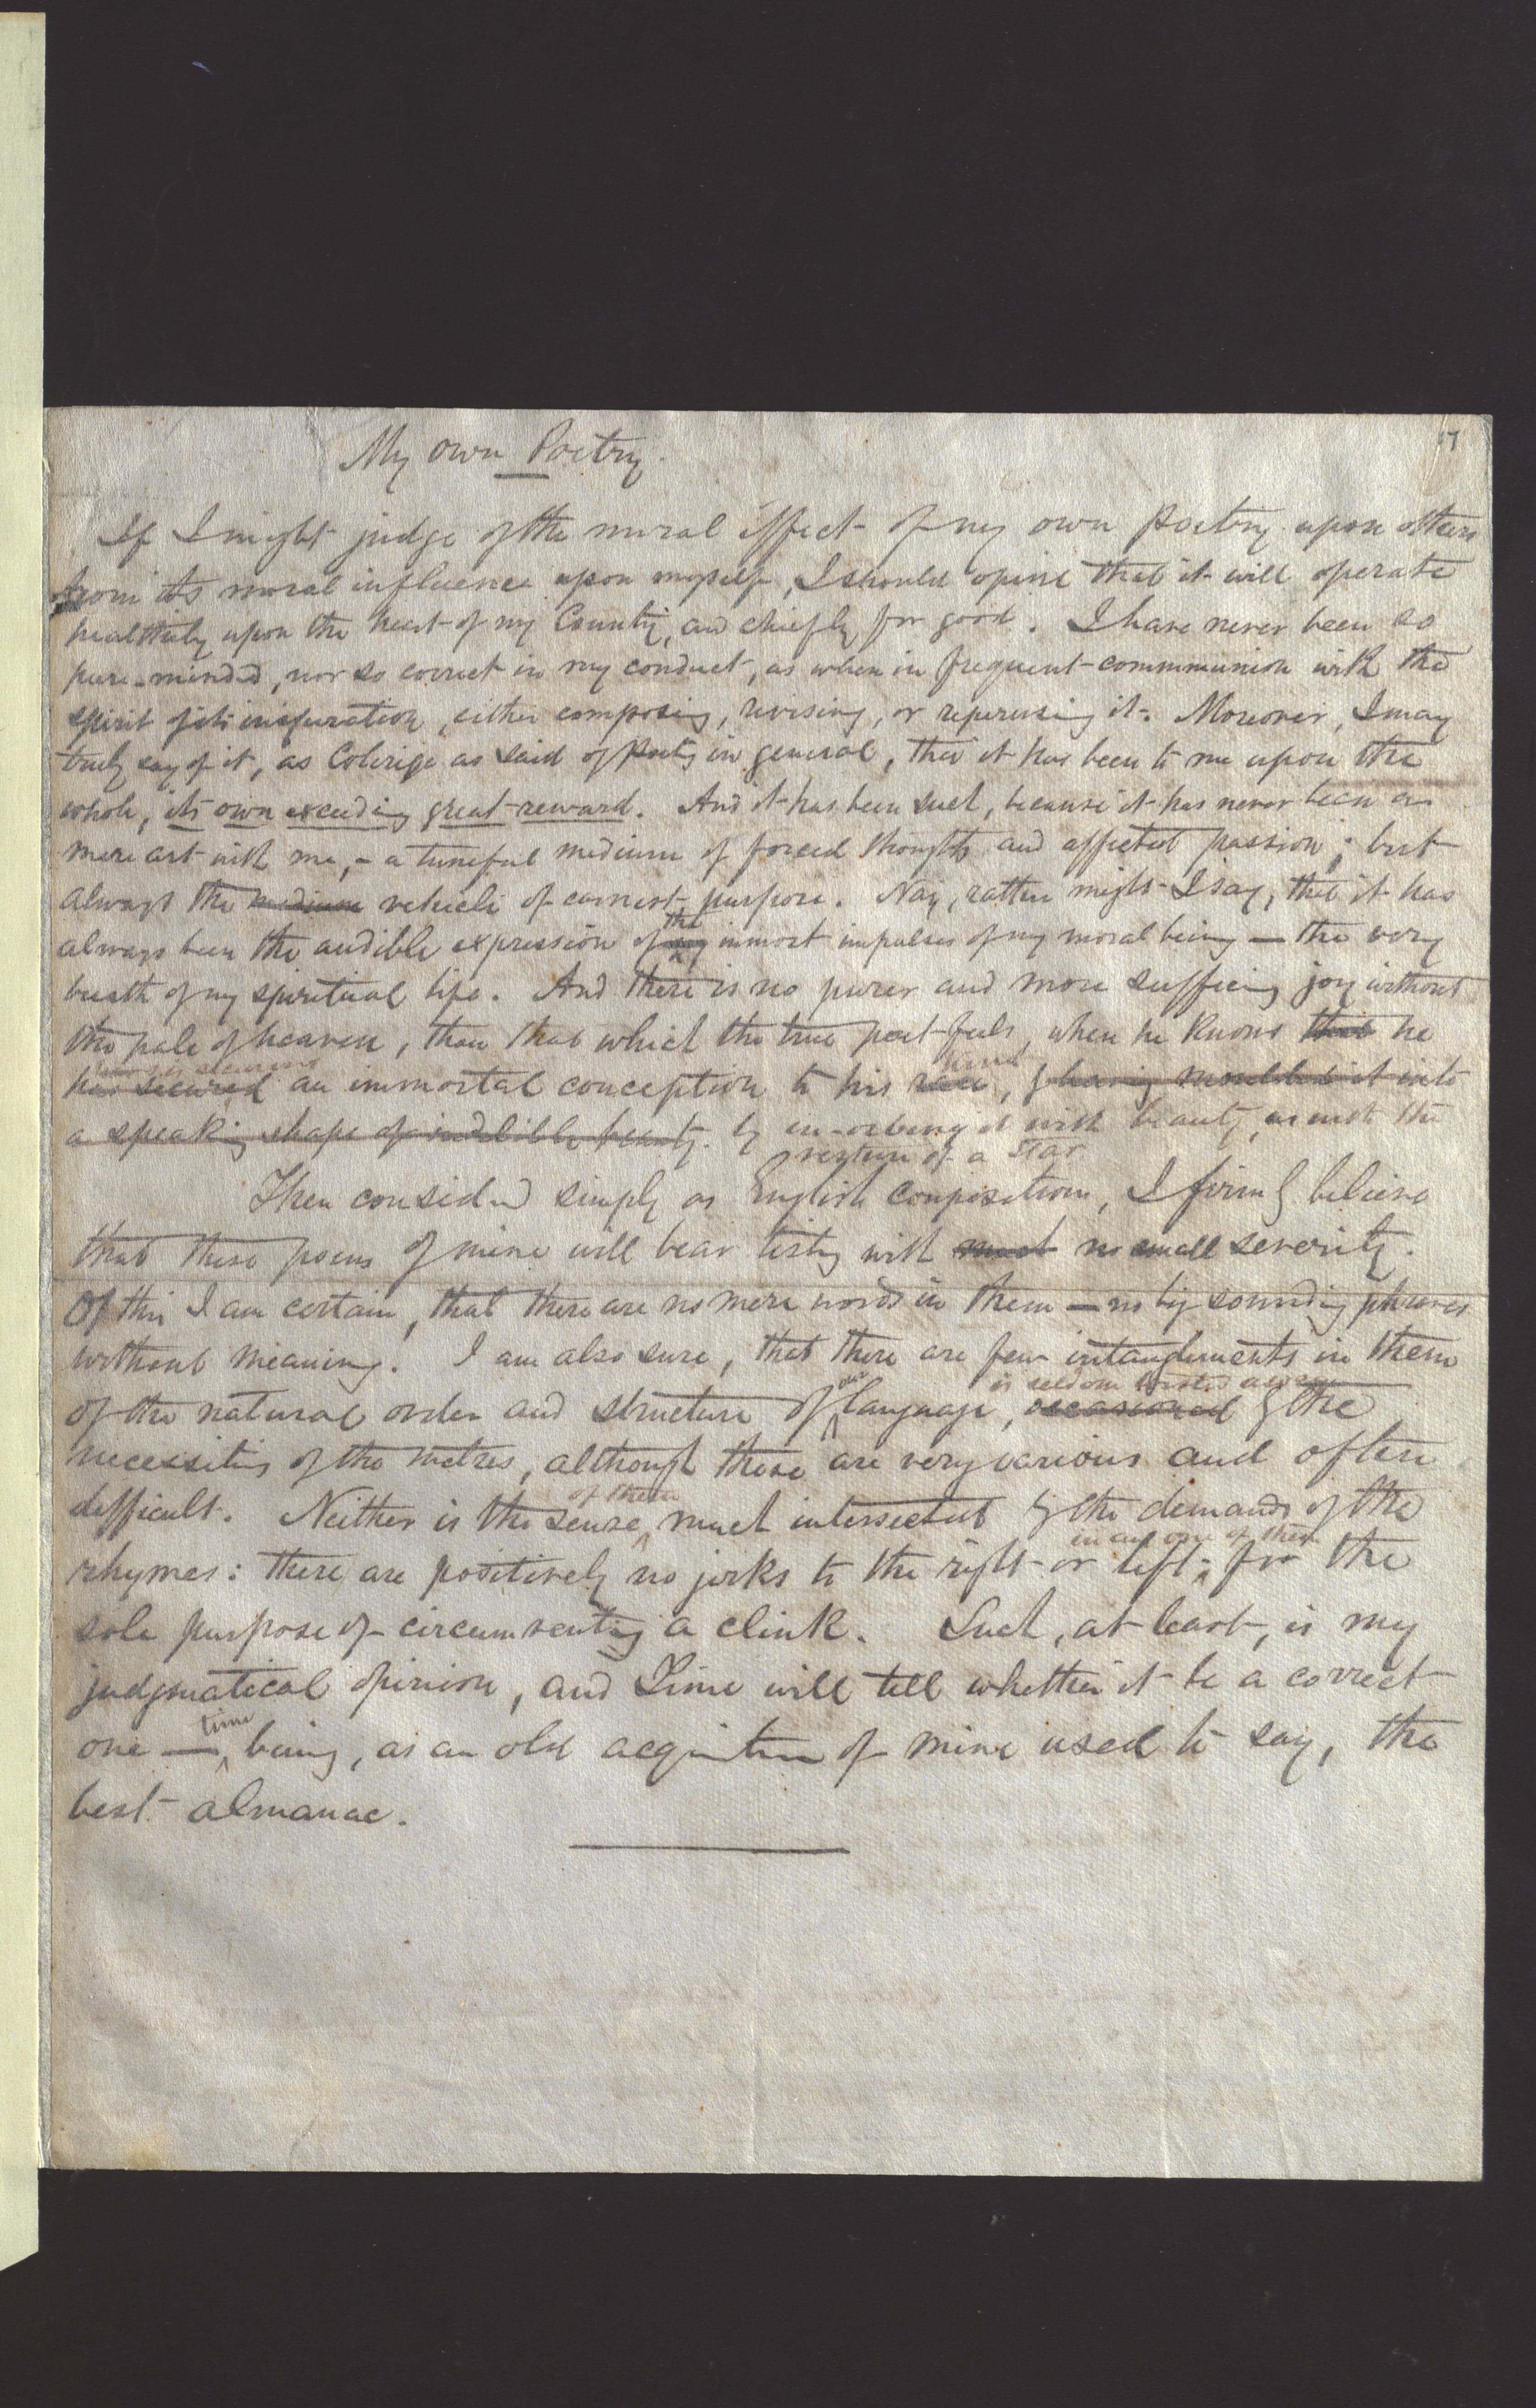 17
My own Poetry.
If I might judge of the moral effect of my own Poetry upon others
from its moral influence upon myself, I should opine that it will operate
healthily upon the heart of my Country, and chiefly for good. I have never been so
pure-minded, nor so correct in my conduct, as when in frequent communion with the
spirit of its inspiration, either composing, revising, or reperusing it. Moreover, I may
truly say of it, as Coleridge as said of Poetry in general, that it has been to me upon the
whole, its own exceeding great reward. And it has been such, because it has never been a
mere art with me, – a tuneful medium of forced thoughts and affected passion; but
always the medium vehicle of earnest purpose. Nay, rather might I say, that it has
the
always been the audible expression of my inmost impulses of my moral being — the very
breath of my spiritual life. And there is no purer and more sufficing joy without
the pale of heaven, than that which the true poet feels, when he knows that he
is securing kind
has secured an immortal conception to his race, by having moulded it into
a speaking shape of indelible beauty. by in-orbing it with beauty, as with the
vesture of a star
Then considered simply as English composition, I firmly believe
that these poems of mine will bear testing with much no small severity.
Of this I am certain, that there are no mere words in them — no big sounding phrases
without meaning. I am also sure, that there are few entanglements in them
our is seldom wrested away
of the natural order and structure of language, occasioned by the
necessities of the metres, although these are very various and often
of them
difficult. Neither is the sense much intersected by the demands of the
in any one of them
rhymes: there are positively no jerks to the right or left, for the
sole purpose of circumventing a clink. Such, at least, is my
judgmatical opinion, and Time will tell whether it be a correct
time
one — being, as an old acquaintance of mine used to say, the
best almanac.